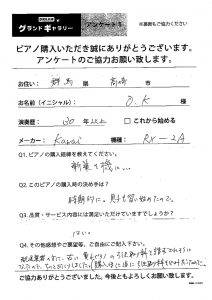 グランドギャラリー アンケート ※裏面もご協力ください
ピアノ購入いただき誠にありがとうございます。
アンケートのご協力お願い致します。
お住い： 群馬 県 高崎 市
お名前(イニシャル)： O.K 様
演奏歴： 30 年以上 □ これから始める
メーカー： Kawai 機種： RX-2A
Q1. ピアノの購入経緯を教えてください。
新築を機に…
Q2. このピアノの購入時の決め手は？
時期的に。
Q3. 品質・サービス内容には満足いただけていますでしょうか？
はい。
Q4. その他感想やご要望等、ご自由にご記入下さい。
ご協力ありがとうございました。今後ともよろしくお願い致します。